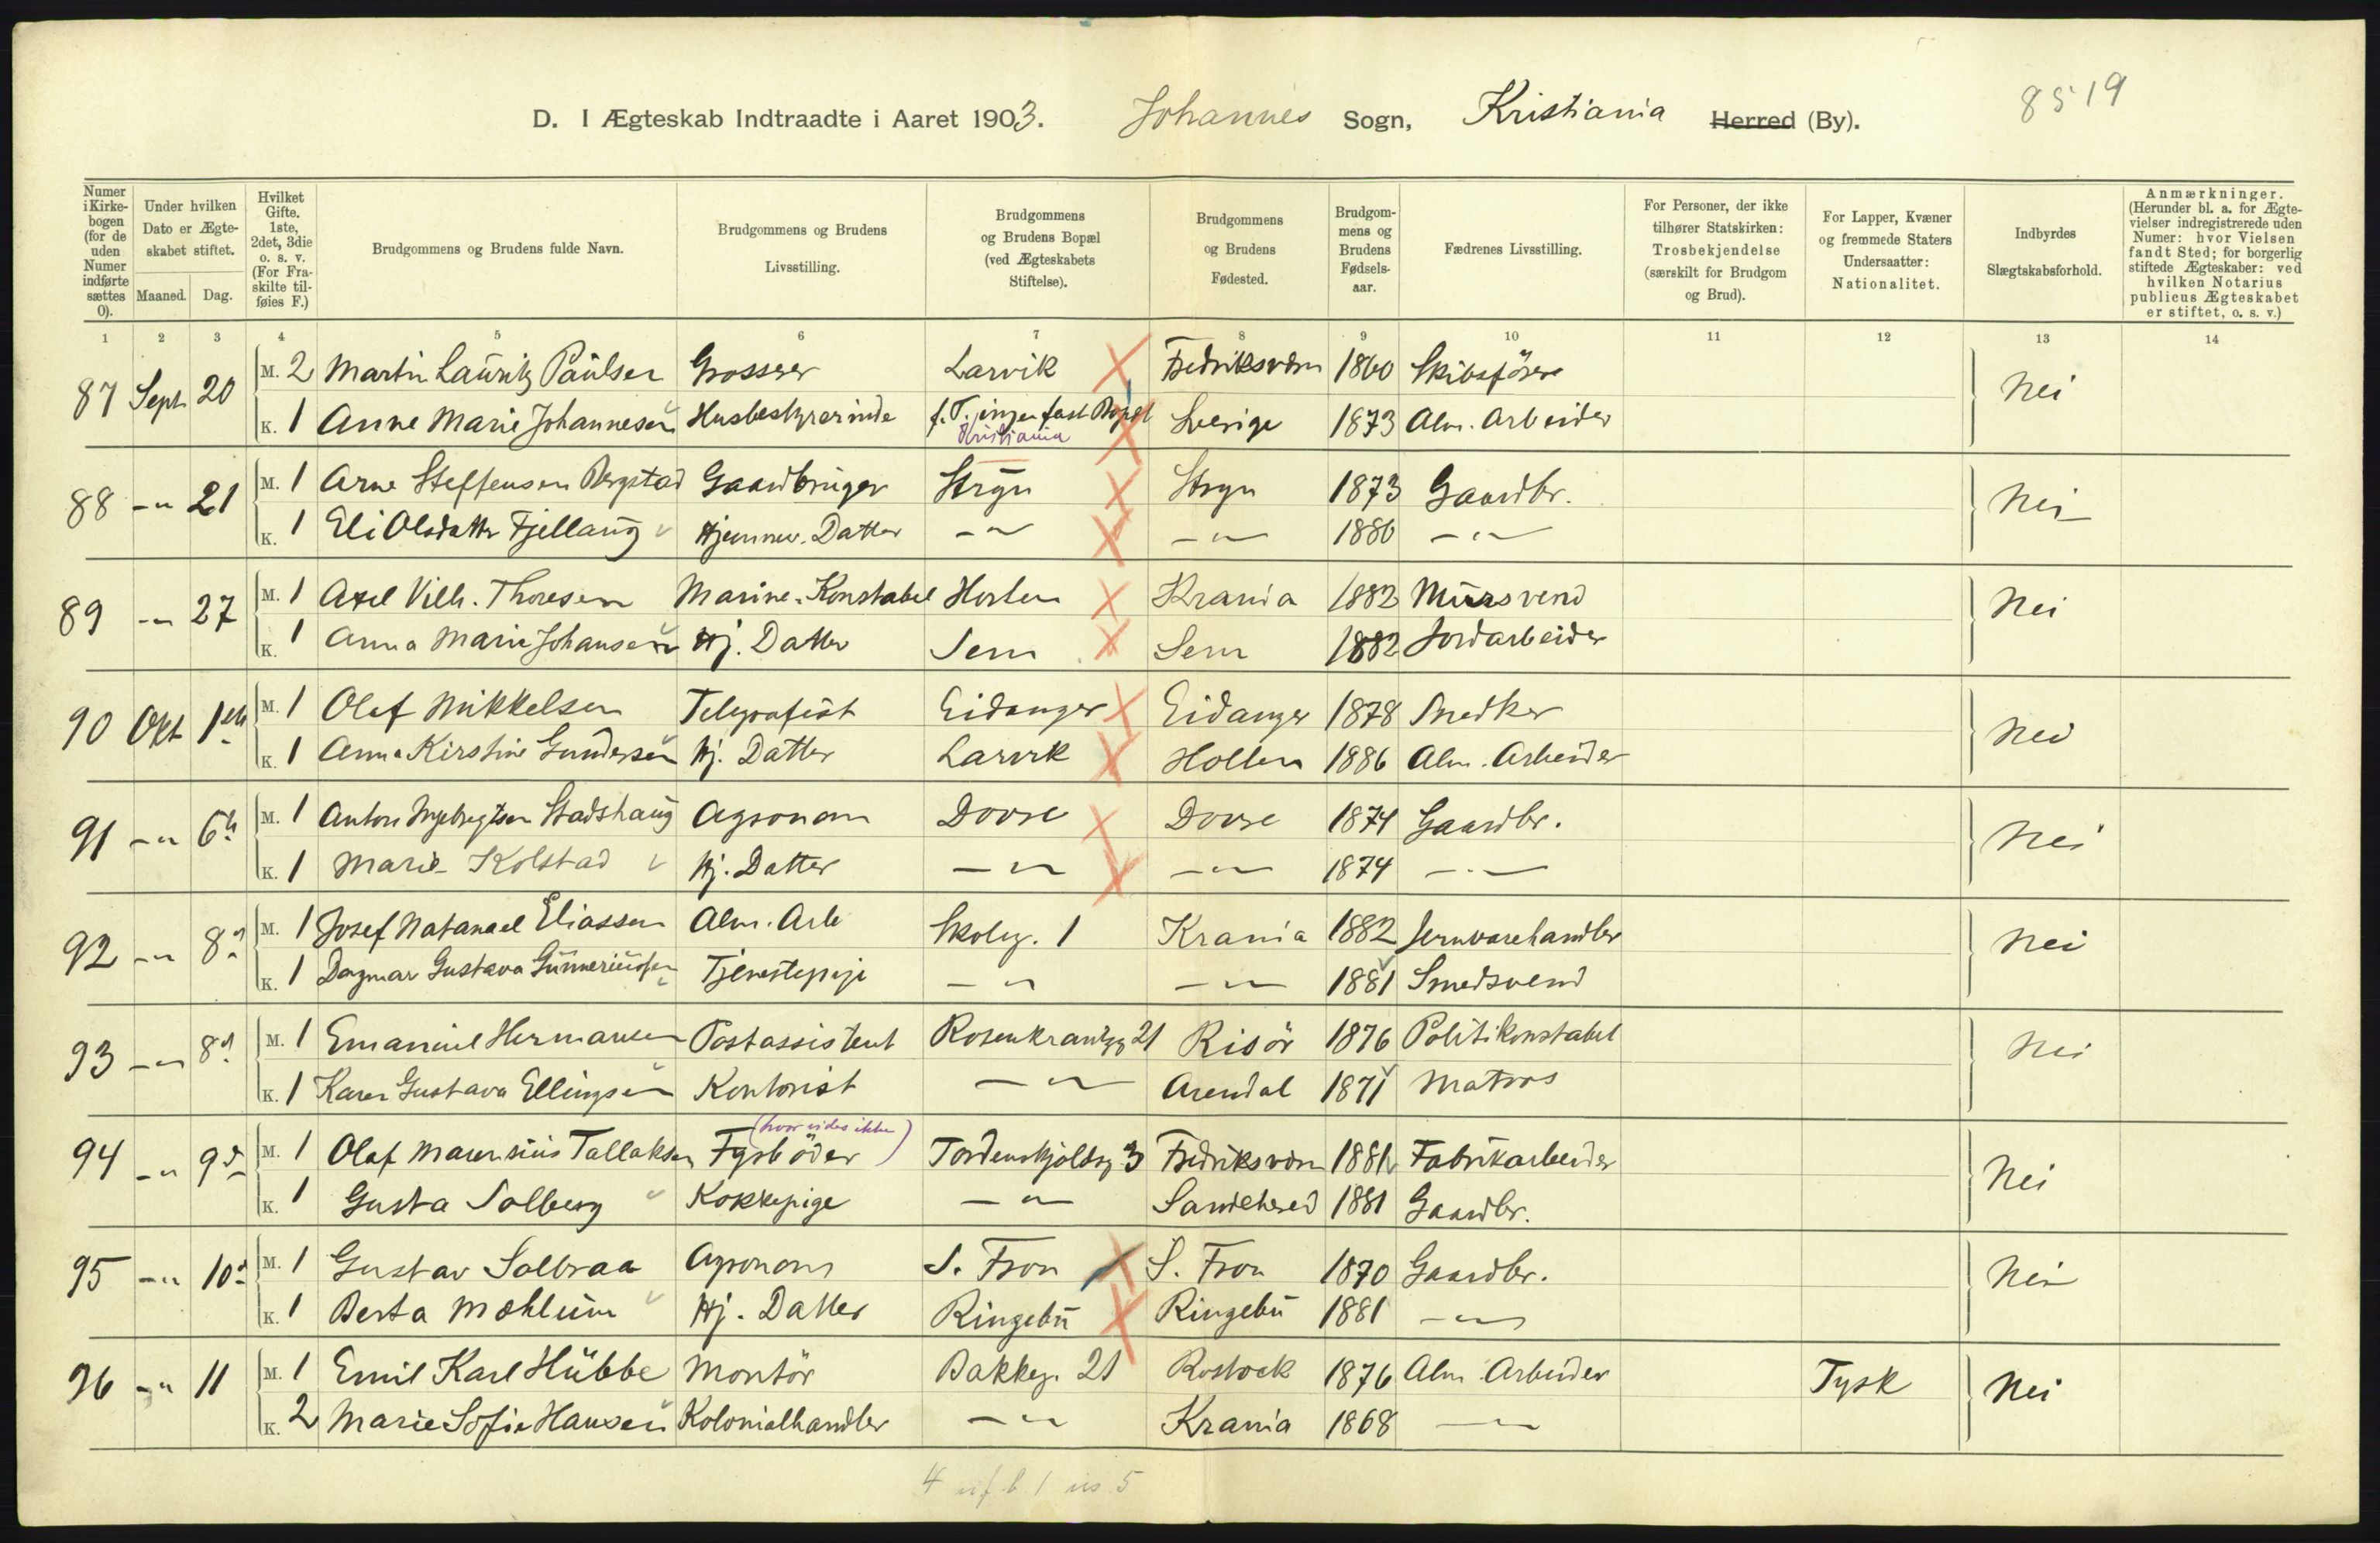 D. I Ægteskab Indtraadte i Aaret 1903. Johannes Sogn, Kristiania Herred (By). 8519
Numer i Kirkebogen (for de uden Numer indførte sættes 0). Under hvilken Dato er Ægteskabet stiftet. Maaned. Dag. Hvilket Gifte. 1ste, 2det, 3die o. s. v. (For Fraskilte tilføies F.) Brudgommens og Brudens fulde Navn. Brudgommens og Brudens Livsstilling. Brudgommens og Brudens Bopæl (ved Ægteskabets Stiftelse). Brudgommens og Brudens Fødested. Brudgommens og Brudens Fødselsaar. Fædrenes Livsstilling. For Personer, der ikke tilhører Statskirken: Trosbekjendelse (særskilt for Brudgom og Brud). For Lapper, Kvæner og fremmede Staters Undersaatter: Nationalitet. Indbyrdes Slægtskabsforhold. Anmærkninger. (Herunder bl. a. for Ægtevielser indregistrerede uden Numer: hvor Vielsen fandt Sted; for borgerlig stiftede Ægteskaber: ved hvilken Notarius publicus Ægteskabet er stiftet, o. s. v.)
1 2 3 4 5 6 7 8 9 10 11 12 13 14
87 Sept. 20 M. 2 Martin Lauritz Paulsen Grosserer Larvik Fredriksværn 1860 Skibsfører Nei
K. 1 Anne Marie Johannesen Husbestyrerinde f. T. ingen fast Bopæl Kristiania Sverige 1873 Alm. Arbeider
88 -"- 21 M. 1 Arne Steffensen Bergstad Gaardbruger Stryn Stryn 1873 Gaardbr. Nei
K. 1 Eli Olsdatter Fjellaug Hjemmev. Datter -"- -"- 1880 -"-
89 -"- 27 M. 1 Axel Vilh. Thoresen Marine-Konstabel Horten Krania 1882 Mursvend Nei
K. 1 Anna Marie Johansen Hj. Datter Sem Sem 1882 Jordarbeider
90 Okt 1ste M. 1 Olaf Mikkelsen Telegrafist Eidanger Eidanger 1878 Snedker Nei
K. 1 Anna Kirstine Gundersen Hj. Datter Larvik Hollen 1886 Alm. Arbeider
91 -"- 6te M. 1 Anton Ingebregtsen Stadshaug Agronom Dovre Dovre 1874 Gaardbr. Nei
K. 1 Marie Kolstad Hj. Datter -"- -"- 1874 -"-
92 -"- 8d M. 1 Josef Natanael Eliassen Alm. Arb Skoleg. 1 Krania 1882 Jernvarehandler Nei
K. 1 Dagmar Gustava Gunneriussen Tjenestepige -"- -"- 1881 Smedsvend
93 -"- 8d M. 1 Emanuel Hermansen Postassistent Rosenkrantzg 21 Risör 1876 Politikonstabel Nei
K. 1 Karen Gustava Ellingsen Kontorist -"- Arendal 1871 Matros
94 -"- 9d M. 1 Olaf Marensius Tallaksen Fyrbøder (hvor vides ikke) Tordenskjoldsg 3 Fredriksværn 1881 Fabrikarbeider Nei
K. 1 Gusta Solberg Kokkepige -"- Sandeherred 1881 Gaardbr.
95 -"- 10d M. 1 Gustav Solbraa Agronom S. Fron S. Fron 1870 Gaardbr. Nei
K. 1 Berta Mæhlum Hj. Datter Ringebu Ringebu 1881 -"-
96 -"- 11 M. 1 Emil Karl Hübbe Montør Bakkeg. 21 Rostock 1876 Alm. Arbeider Tysk Nei
K. 2 Marie Sofie Hansen Kolonialhandler -"- Krania 1868 -"-